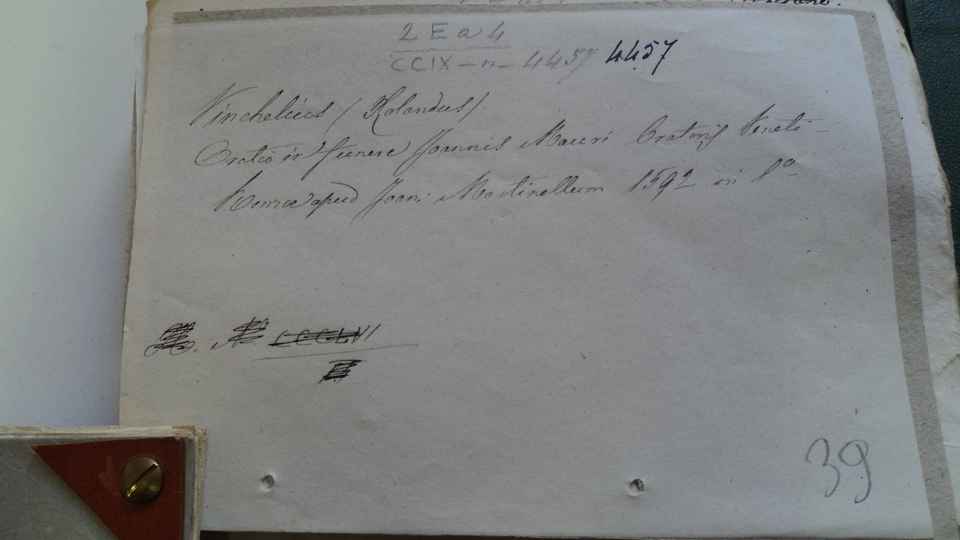 2 E a 4
CCIX - n - 4457 4457
Vinchelius (Rolandus)
Oratio in funere Joannis Mauri Oratoris Veneti -
Romae apud Joan: Martinellum 1592 in 8°
CCCLVI
39